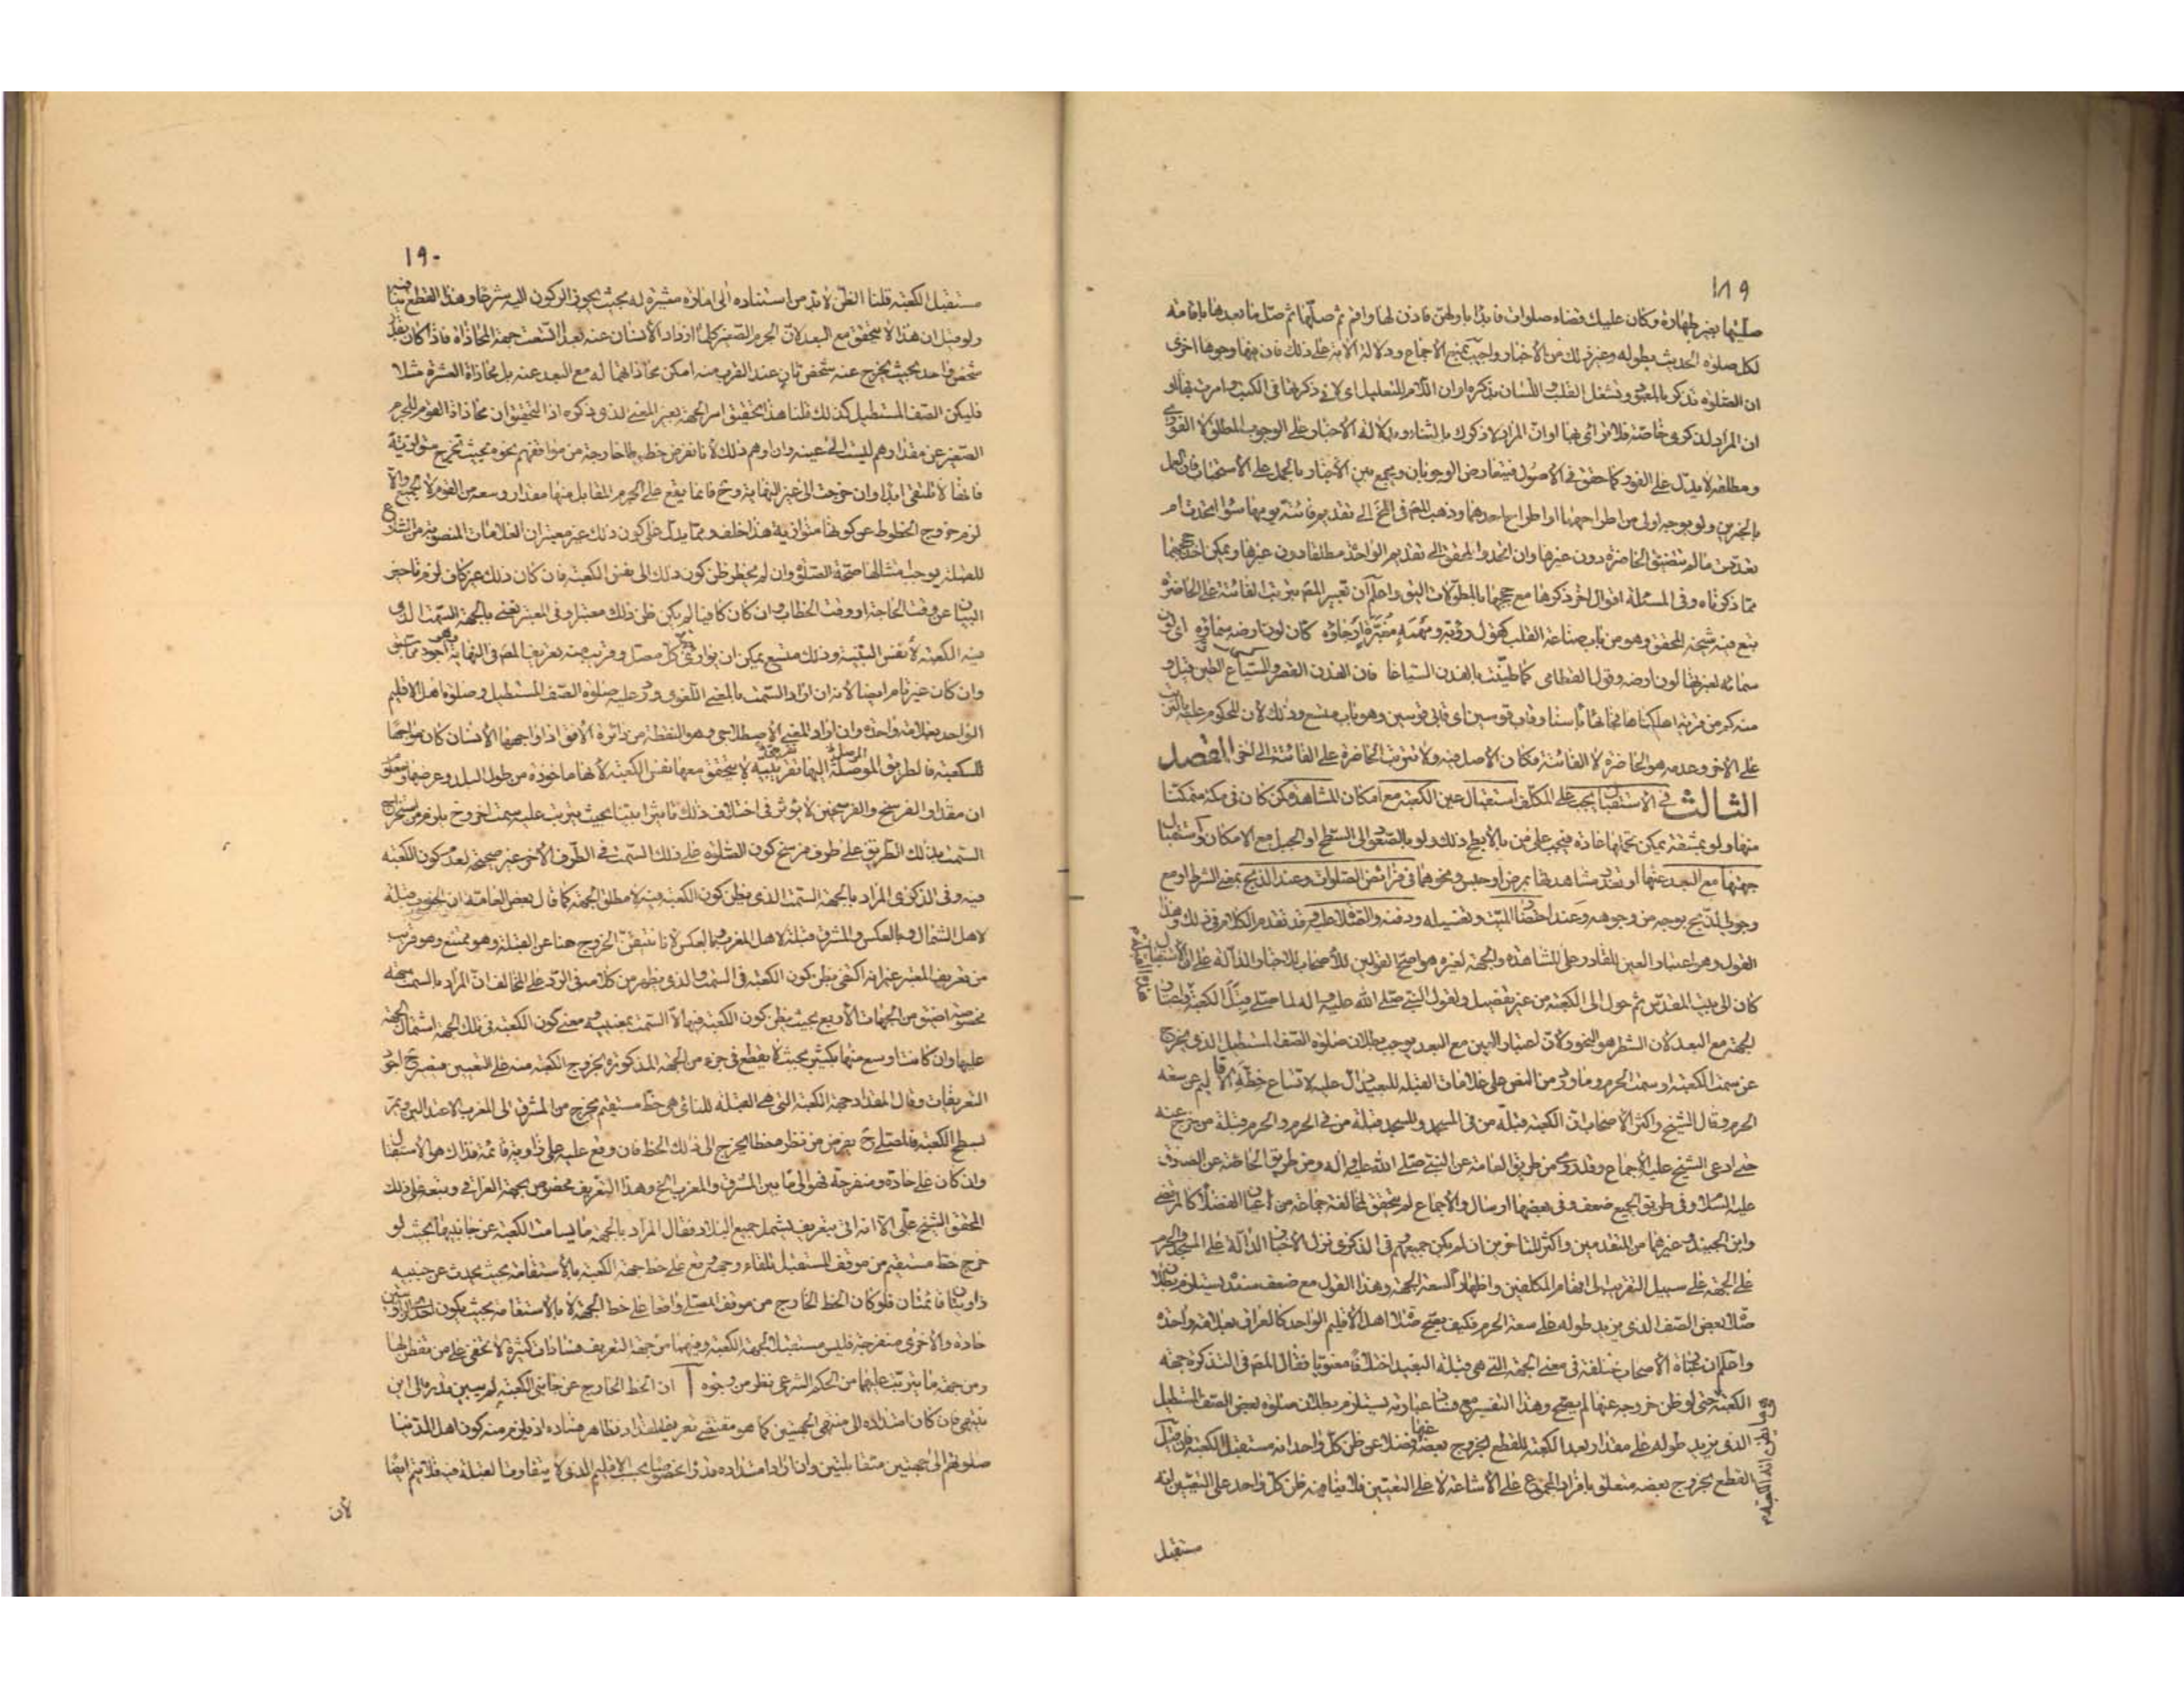 ١٨٩
صليتها بغير طهارة وكان عليك قضاء صلوات فابدأ باولهن فاذن لها واقم ثم صلها ثم صل ما بعدها باقامة
لكل صلوة الحديث بطوله وغير ذلك من الاخبار واجيب بمنع الاجماع ودلالة الآية على ذلك فان فيها وجوها اخرى
ان الصلوة تذكر بالمعبود وتشغل القلب واللسان بذكره او ان اللام للتعليل اي لاني ذكرتها في الكتب وامرت بها او
ان المراد لذكري خاصة فلا تراءى بها او ان المراد لاذكرك بالثناء ودلالة الاخبار على الوجوب المطلق لا الفوري
ومطلقه لا يدل على الفور كما حقق في الاصول فيتعارض الوجوبان ويجمع بين الاخبار بالحمل على الاستحباب فان العمل
بالخبرين ولو بوجه اولى من اطراحهما او اطراح احدهما وذهب المصنف في المخ الى تقديم فائتة يومها سواء اتحدت ام
تعددت ما لم يتضيق الحاضرة دون غيرها وان اتحدت والمحقق الى تقديم الواحدة مطلقا دون غيرها ويمكن احتجاجهما
بما ذكرناه وفي المسئلة اقوال اخر ذكرها مع حججها بالمطولات اليق واعلم ان تعبير المصنف بترتيب الفائتة على الحاضرة
تبع فيه شيخه المحقق وهو من باب صناعة القلب كقول رؤبة ومهمه مغبرة ارجاؤه كان لون ارضه سماؤه اي لون
سمائه لغبرتها لون ارضه وقول القطامي كما طينت بالفدن السياعا فان الفدن القصر والسياع الطين قيل و
منه كم من قرية اهلكناها فجائها بأسنا وقاب قوسين اي قابي قوسين وهو باب متسع وذلك لان المحكوم عليه بالترتيب
على الاخر وعدمه هو الحاضرة لا الفائتة فكان الاصل فيه ولا تترتب الحاضرة على الفائتة الى اخر الفصل
الثالث في الاستقبال يجب على المكلف استقبال عين الكعبة مع امكان المشاهدة كمن كان في مكة متمكنا
منها ولو بمشقة يمكن تحملها عادة فيجب على من بالابطح ذلك ولو بالصعود الى السطح او الجبل مع الامكان واستقبال
جهتها مع البعد عنها او تعذر مشاهدتها بمرض او حبس ونحوهما في فرائض الصلوات وعند الذبح بمعنى الشرط او مع
وجوب الذبح بوجه من وجوهه وعند احتضار الميت وتغسيله ودفنه والصلاة عليه وقد تقدم الكلام في ذلك وهذا
القول وهو اعتبار العين للقادر على المشاهدة والجهة لغيره هو اصح القولين للاصحاب للاخبار الدالة على ان الاستقبال
كان الى بيت المقدس ثم حول الى الكعبة من غير تفصيل ولقول النبي صلى الله عليه واله لما صلى قبل الكعبة
لجهة مع البعد لان الشطر هو النحو ولان اعتبار العين مع البعد يوجب بطلان صلوة الصف المستطيل الذي يخرج
عن سمت الكعبة او سمت الحرم وما ورد من النص على علامات القبلة للبعيد دال عليه لاتساع خطة الاقاليم عن سعة
الحرم وقال الشيخ واكثر الاصحاب ان الكعبة قبلة من في المسجد والمسجد قبلة من في الحرم والحرم قبلة من خرج عنه
حتى ادعى الشيخ عليه الاجماع وقد روي من طريق العامة عن النبي صلى الله عليه واله ومن طريق الخاصة عن الصادق
عليه السلام وفي طريق الجميع ضعف وفي بعضها ارسال والاجماع لم يتحقق لمخالفة جماعة من اعيان الفضلاء كالمرتضى
وابن الجنيد وغيرهما من المتقدمين واكثر المتأخرين ان لم يكن جميعهم في الذكرى نزل الاخبار الدالة على المسجد والحرم
على الجهة على سبيل التقريب الى افهام المكلفين واظهارا لسعة الجهة وهذا القول مع ضعف سنده يستلزم بطلان
صلاة بعض الصف الذي يزيد طوله على سعة الحرم فكيف يصح صلاة اهل الاقليم الواحد كالعراق بعلامة واحدة
واعلم ان عبارة الاصحاب مختلفة في معنى الجهة التي هي قبلة البعيد اختلافا معنويا فقال المصنف في التذكرة جهة
الكعبة حتى لو ظن خروجه عنها لم يصح وهذا التفسير مع فساد عبارته يستلزم بطلان صلوة بعض الصف المستطيل
الذي يزيد طوله على مقدار بعد الكعبة للقطع بخروج بعضه عنها فضلا عن ظن كل واحد انه مستقبل الكعبة فان قيل
القطع بخروج بعضه متعلق بافراد المجموع على الاشاعة لا على التعيين فلا ينافيه ظن كل واحد على التعيين انه
مستقبل
١٩٠
مستقبل الكعبة قلنا الظن لابد من استناده الى امارة مثيرة له بحيث يجوز الركون اليه شرعا وهذا القطع ينافيه
ولو قيل ان هذا لا يتحقق مع البعد لان الجرم الصغير كلما ازداد الانسان عنه بعدا اتسعت جهة المحاذاة فاذا كان بقدر
شخص واحد بحيث يخرج عنه شخص ثان عند القرب منه امكن محاذاتهما له مع البعد عنه بل محاذاة العشرة مثلا
فليكن الصف المستطيل كذلك قلنا هذا تحقيق امر الجهة بغير المعنى الذي ذكره اذ التحقيق ان محاذاة القوم للجرم
الصغير عن مقدارهم ليست الى عينه وان اوهم ذلك لانا نفرض خطوطا خارجة من مواقفهم نحوه بحيث تخرج متوازية
فانها لا تلتقي ابدا وان خرجت الى غير النهاية وح فانما يقع على الجرم المقابل منها مقدار وسعه من القوم لا الجميع والا
لزم خروج الخطوط عن كونها متوازية هذا خلف ومما يدل على كون ذلك غير معتبر ان العلامات المنصوبة من الشارع
للصلاة يوجب امتثالها صحة الصلوة وان لم يخطر ظن كون ذلك الى نفس الكعبة فان كان ذلك غير كاف لزم تأخير
البيان عن وقت الحاجة او وقت الخطاب وان كان كافيا لم يكن ظن ذلك معتبرا وفي المعتبر نعني بالجهة السمت الذي
فيه الكعبة لا نفس البنية وذلك متسع يمكن ان يوازي كل مصل وقريب منه تعريف المصنف في النهاية وهو اجود مما سبق
وان كان غير تام ايضا لانه ان اراد السمت بالمعنى اللغوي ورد عليه صلوة الصف المستطيل وصلوة اهل الاقليم
الواحد بعلامة واحدة وان اراد المعنى الاصطلاحي وهو النقطة من دائرة الافق اذا واجهها الانسان كان مواجها
للكعبة فالطريق الموصلة اليها تقريبية لا يتحقق معها نفس الكعبة لانها ماخوذة من طول البلد وعرضها ومعلوم
ان مقدار الفرسخ والفرسخين لا يؤثر في اختلاف ذلك تأثيرا بينا بحيث يترتب عليه سمت اخر وح يلزم من استخراج
السمت بذلك الطريق على طرف فرسخ كون الصلوة على ذلك السمت في الطرف الاخر غير صحيحة لعدم كون الكعبة
فيه وفي الذكرى المراد بالجهة السمت الذي يظن كون الكعبة فيه لا مطلق الجهة كما قال بعض العامة ان الجنوب قبلة
لاهل الشمال وبالعكس والمشرق قبلة لاهل المغرب وبالعكس لانا نتيقن الخروج هنا عن القبلة وهو ممتنع وهو قريب
من تعريف المعتبر غير انه اكتفى بظن كون الكعبة في السمت والذي يظهر من كلامه في الرد على المخالف ان المراد بالسمت جهة
مخصوصة اضيق من الجهات الاربع بحيث يظن كون الكعبة فيها لا السمت بمعنييه ومعنى كون الكعبة في تلك الجهة اشتمال الجهة
عليها وان كانت اوسع منها بكثير بحيث لا يقطع في جزء من الجهة المذكورة بخروج الكعبة منه على التعيين فيصير ح اجود
التعريفات وقال المقداد جهة الكعبة التي هي القبلة للنائي هي خط مستقيم يخرج من المشرق الى المغرب الاعتداليين ويمر
بسطح الكعبة فالمصلي ح يفرض من نظره خطا يخرج الى ذلك الخط فان وقع عليه على زاوية قائمة فذاك هو الاستقبال
وان كان على حادة ومنفرجة فهو الى ما بين المشرق والمغرب الخ وهذا التعريف مخصوص بجهة العراقي وتبعه على ذلك
المحقق الشيخ علي الا انه اتى بتعريف يشمل جميع البلاد فقال المراد بالجهة ما يسامت الكعبة عن جانبيها بحيث لو
خرج خط مستقيم من موقف المستقبل تلقاء وجهه وقع على خط جهة الكعبة بالاستقامة بحيث يحدث عن جنبيه
زاويتان قائمتان فلو كان الخط الخارج من موقف المصلي واقعا على خط الجهة لا بالاستقامة بحيث يكون احدى الزاويتين
حادة والاخرى منفرجة فليس مستقبلا لجهة الكعبة وفيهما من جهة التعريف فسادات كثيرة لا تخفى على من تفطن لها
ومن جهة ما يترتب عليهما من الحكم الشرعي نظر من وجوه آ ان الخط الخارج عن جانبي الكعبة لم يبين قدره الى اين
ينتهي فان كان امتداده الى منتهى الجهتين كما هو مقتضى تعريف المقداد فظاهر فساده اذ يلزم منه كون اهل الدنيا
صلوتهم الى جهتين متقابلتين وان اراد امتداده قدرا مخصوصا بحسب الاقليم الذي لا يتفاوت القبلة فيه فلا يتم ايضا
لان